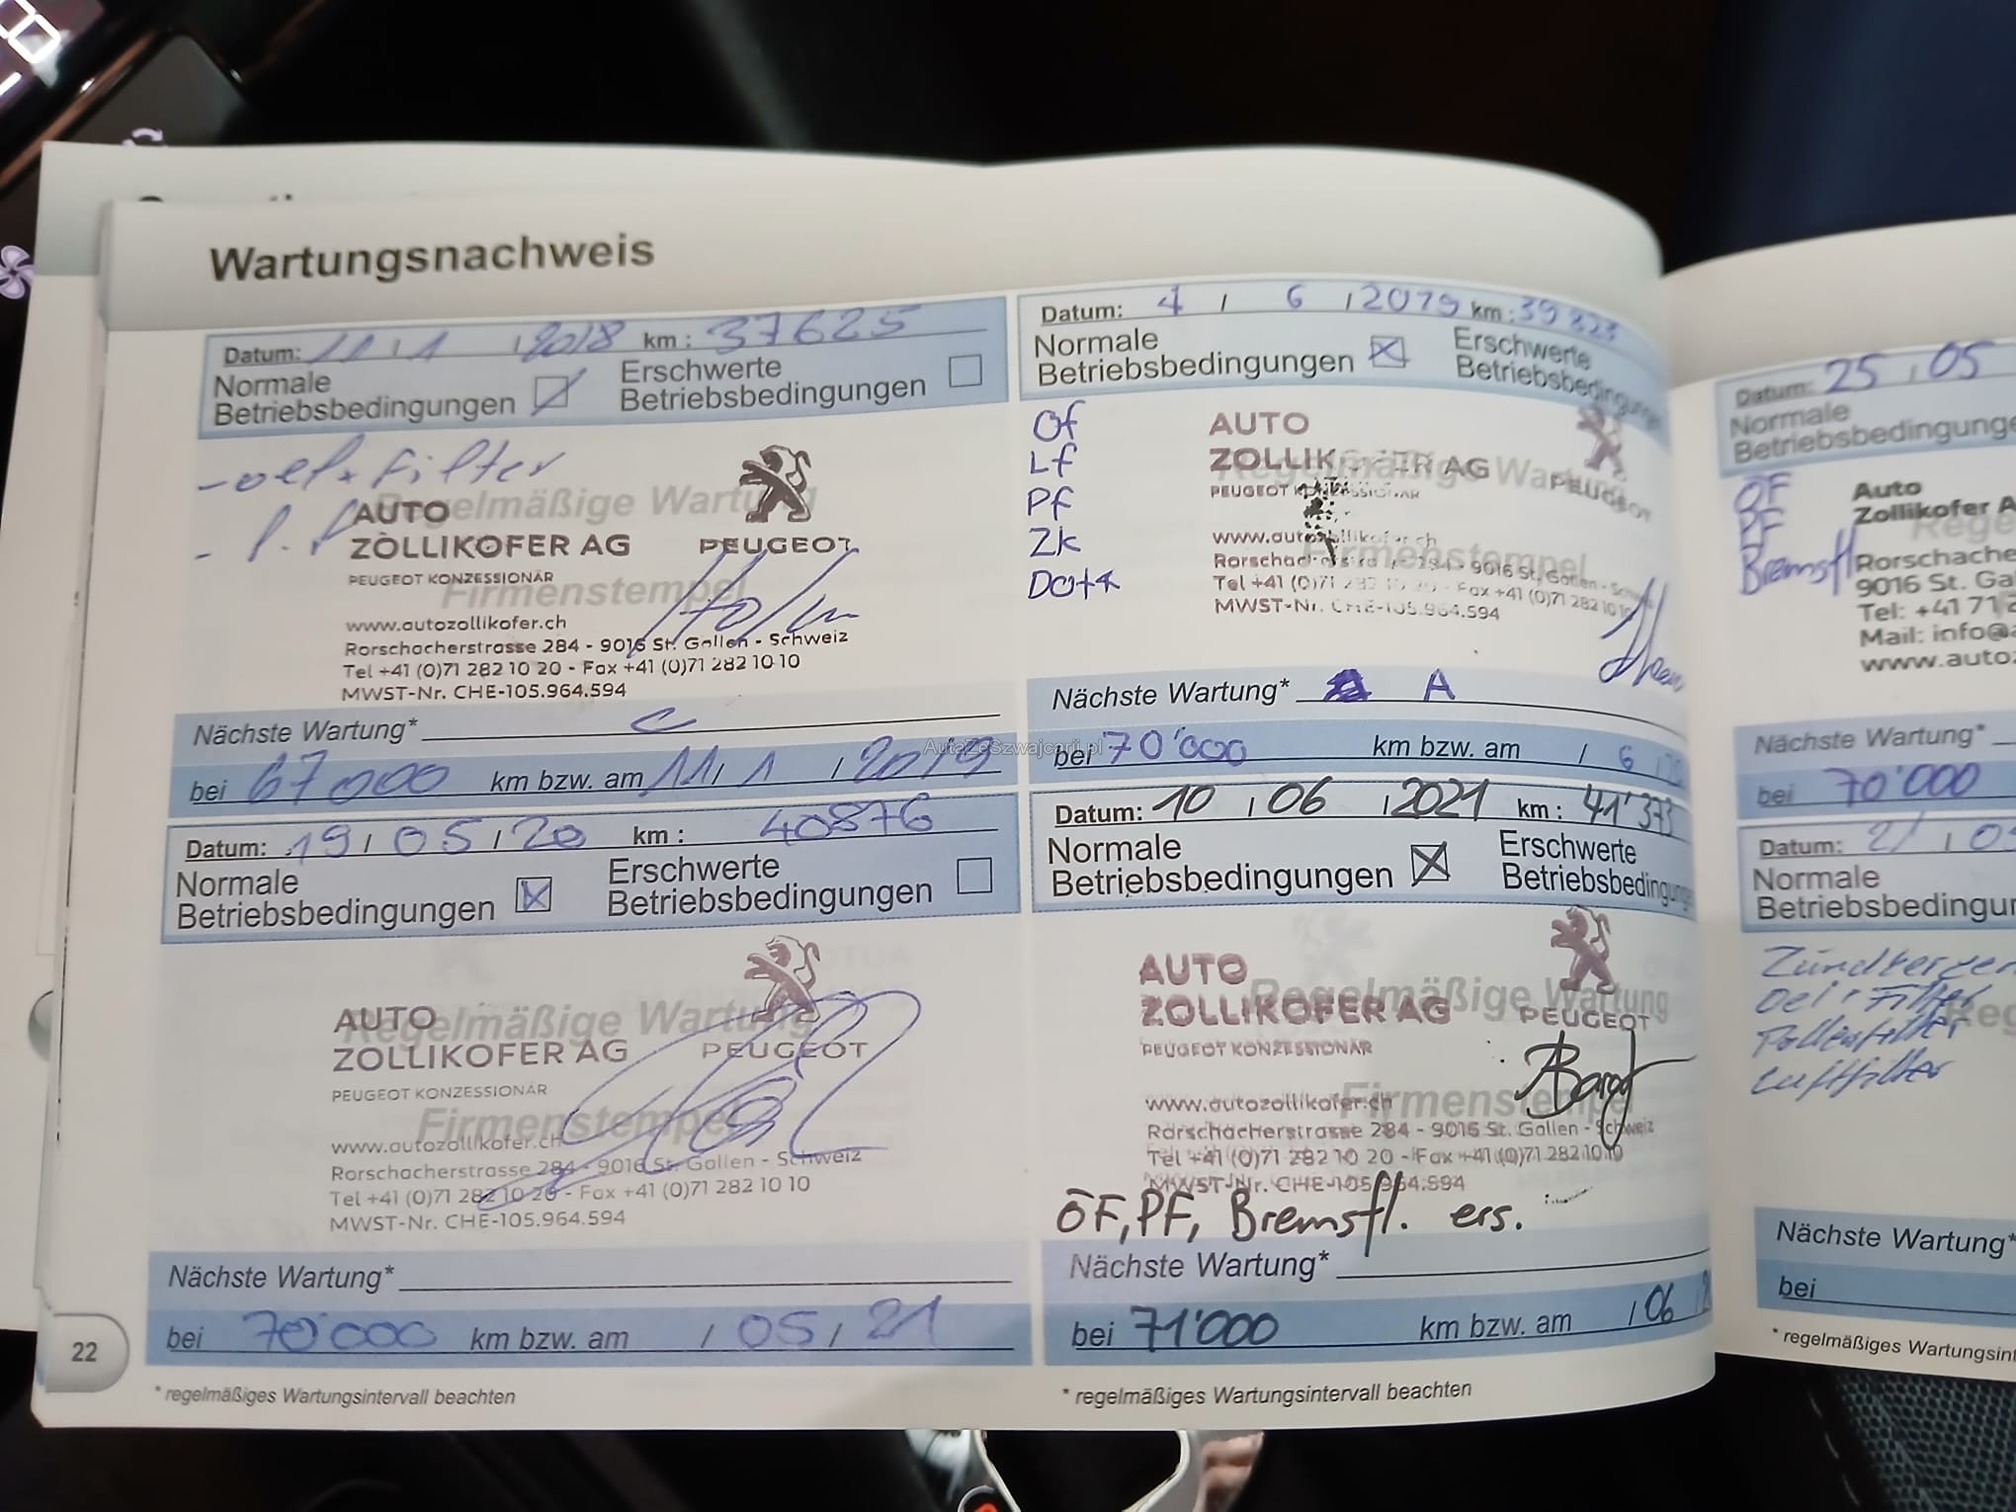 Wartungsnachweis
Datum: 11 / 1 / 2018 km : 37625
Normale
Betriebsbedingungen
Erschwerte
Betriebsbedingungen
- oel + Filter
Regelmäßige Wartung
AUTO
ZOLLIKOFER AG
PEUGEOT
PEUGEOT KONZESSIONÄR
Firmenstempel
www.autozollikofer.ch
Rorschacherstrasse 284 - 9016 St. Gallen - Schweiz
Tel +41 (0)71 282 10 20 - Fax +41 (0)71 282 10 10
MWST-Nr. CHE-105.964.594
Nächste Wartung* C
bei 67000 km bzw. am 11 / 1 / 2019
Datum: 4 / 6 / 2019 km : 39823
Normale
Betriebsbedingungen
Erschwerte
Betriebsbedingungen
Öf
Lf
Pf
Zk
Dot4
AUTO
ZOLLIKOFER AG
Regelmäßige Wartung
PEUGEOT
PEUGEOT KONZESSIONÄR
Firmenstempel
www.autozollikofer.ch
Rorschacherstrasse 284 - 9016 St. Gallen - Schweiz
Tel +41 (0)71 282 10 20 - Fax +41 (0)71 282 10 10
MWST-Nr. CHE-105.964.594
Nächste Wartung* A
bei 70'000 km bzw. am / 6 /
AutaZeSzwajcarii.pl
Datum: 19 / 05 / 20 km : 40876
Normale
Betriebsbedingungen
Erschwerte
Betriebsbedingungen
AUTO
Regelmäßige Wartung
ZOLLIKOFER AG
PEUGEOT
PEUGEOT KONZESSIONÄR
Firmenstempel
www.autozollikofer.ch
Rorschacherstrasse 284 - 9016 St. Gallen - Schweiz
Tel +41 (0)71 282 10 20 - Fax +41 (0)71 282 10 10
MWST-Nr. CHE-105.964.594
Nächste Wartung*
bei 70'000 km bzw. am / 05 / 21
* regelmäßiges Wartungsintervall beachten
22
Datum: 10 / 06 / 2021 km : 41'373
Normale
Betriebsbedingungen
Erschwerte
Betriebsbedingungen
AUTO
Regelmäßige Wartung
ZOLLIKOFER AG
PEUGEOT
PEUGEOT KONZESSIONÄR
Firmenstempel
www.autozollikofer.ch
Rorschacherstrasse 284 - 9016 St. Gallen - Schweiz
Tel +41 (0)71 282 10 20 - Fax +41 (0)71 282 10 10
MWST-Nr. CHE-105.964.594
ÖF, PF, Bremsfl. ers.
Nächste Wartung*
bei 71'000 km bzw. am / 06 /
* regelmäßiges Wartungsintervall beachten
Datum: 25 / 05
Normale
Betriebsbedingunge
ÖF
PF
Bremsfl
Auto
Zollikofer A
Rorschache
9016 St. Ga
Tel: +41 71 2
Mail: info@a
www.auto
Nächste Wartung*
bei 70'000
Datum: 2
Normale
Betriebsbedingun
Zündkerzen
Oel + Filter
Pollenfilter
Luftfilter
Nächste Wartung*
bei
* regelmäßiges Wartungsint